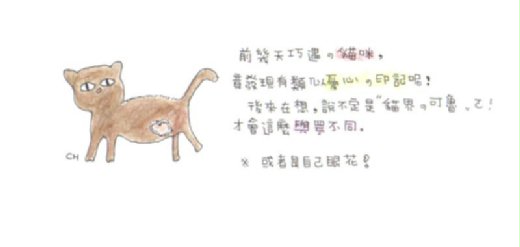 前幾天巧遇の貓咪，
竟發現有類似愛心の印記呢！
後來在想，說不定是"貓界の可魯"ㄛ！
才會這麼與眾不同．
※ 或者是自己眼花？
CH